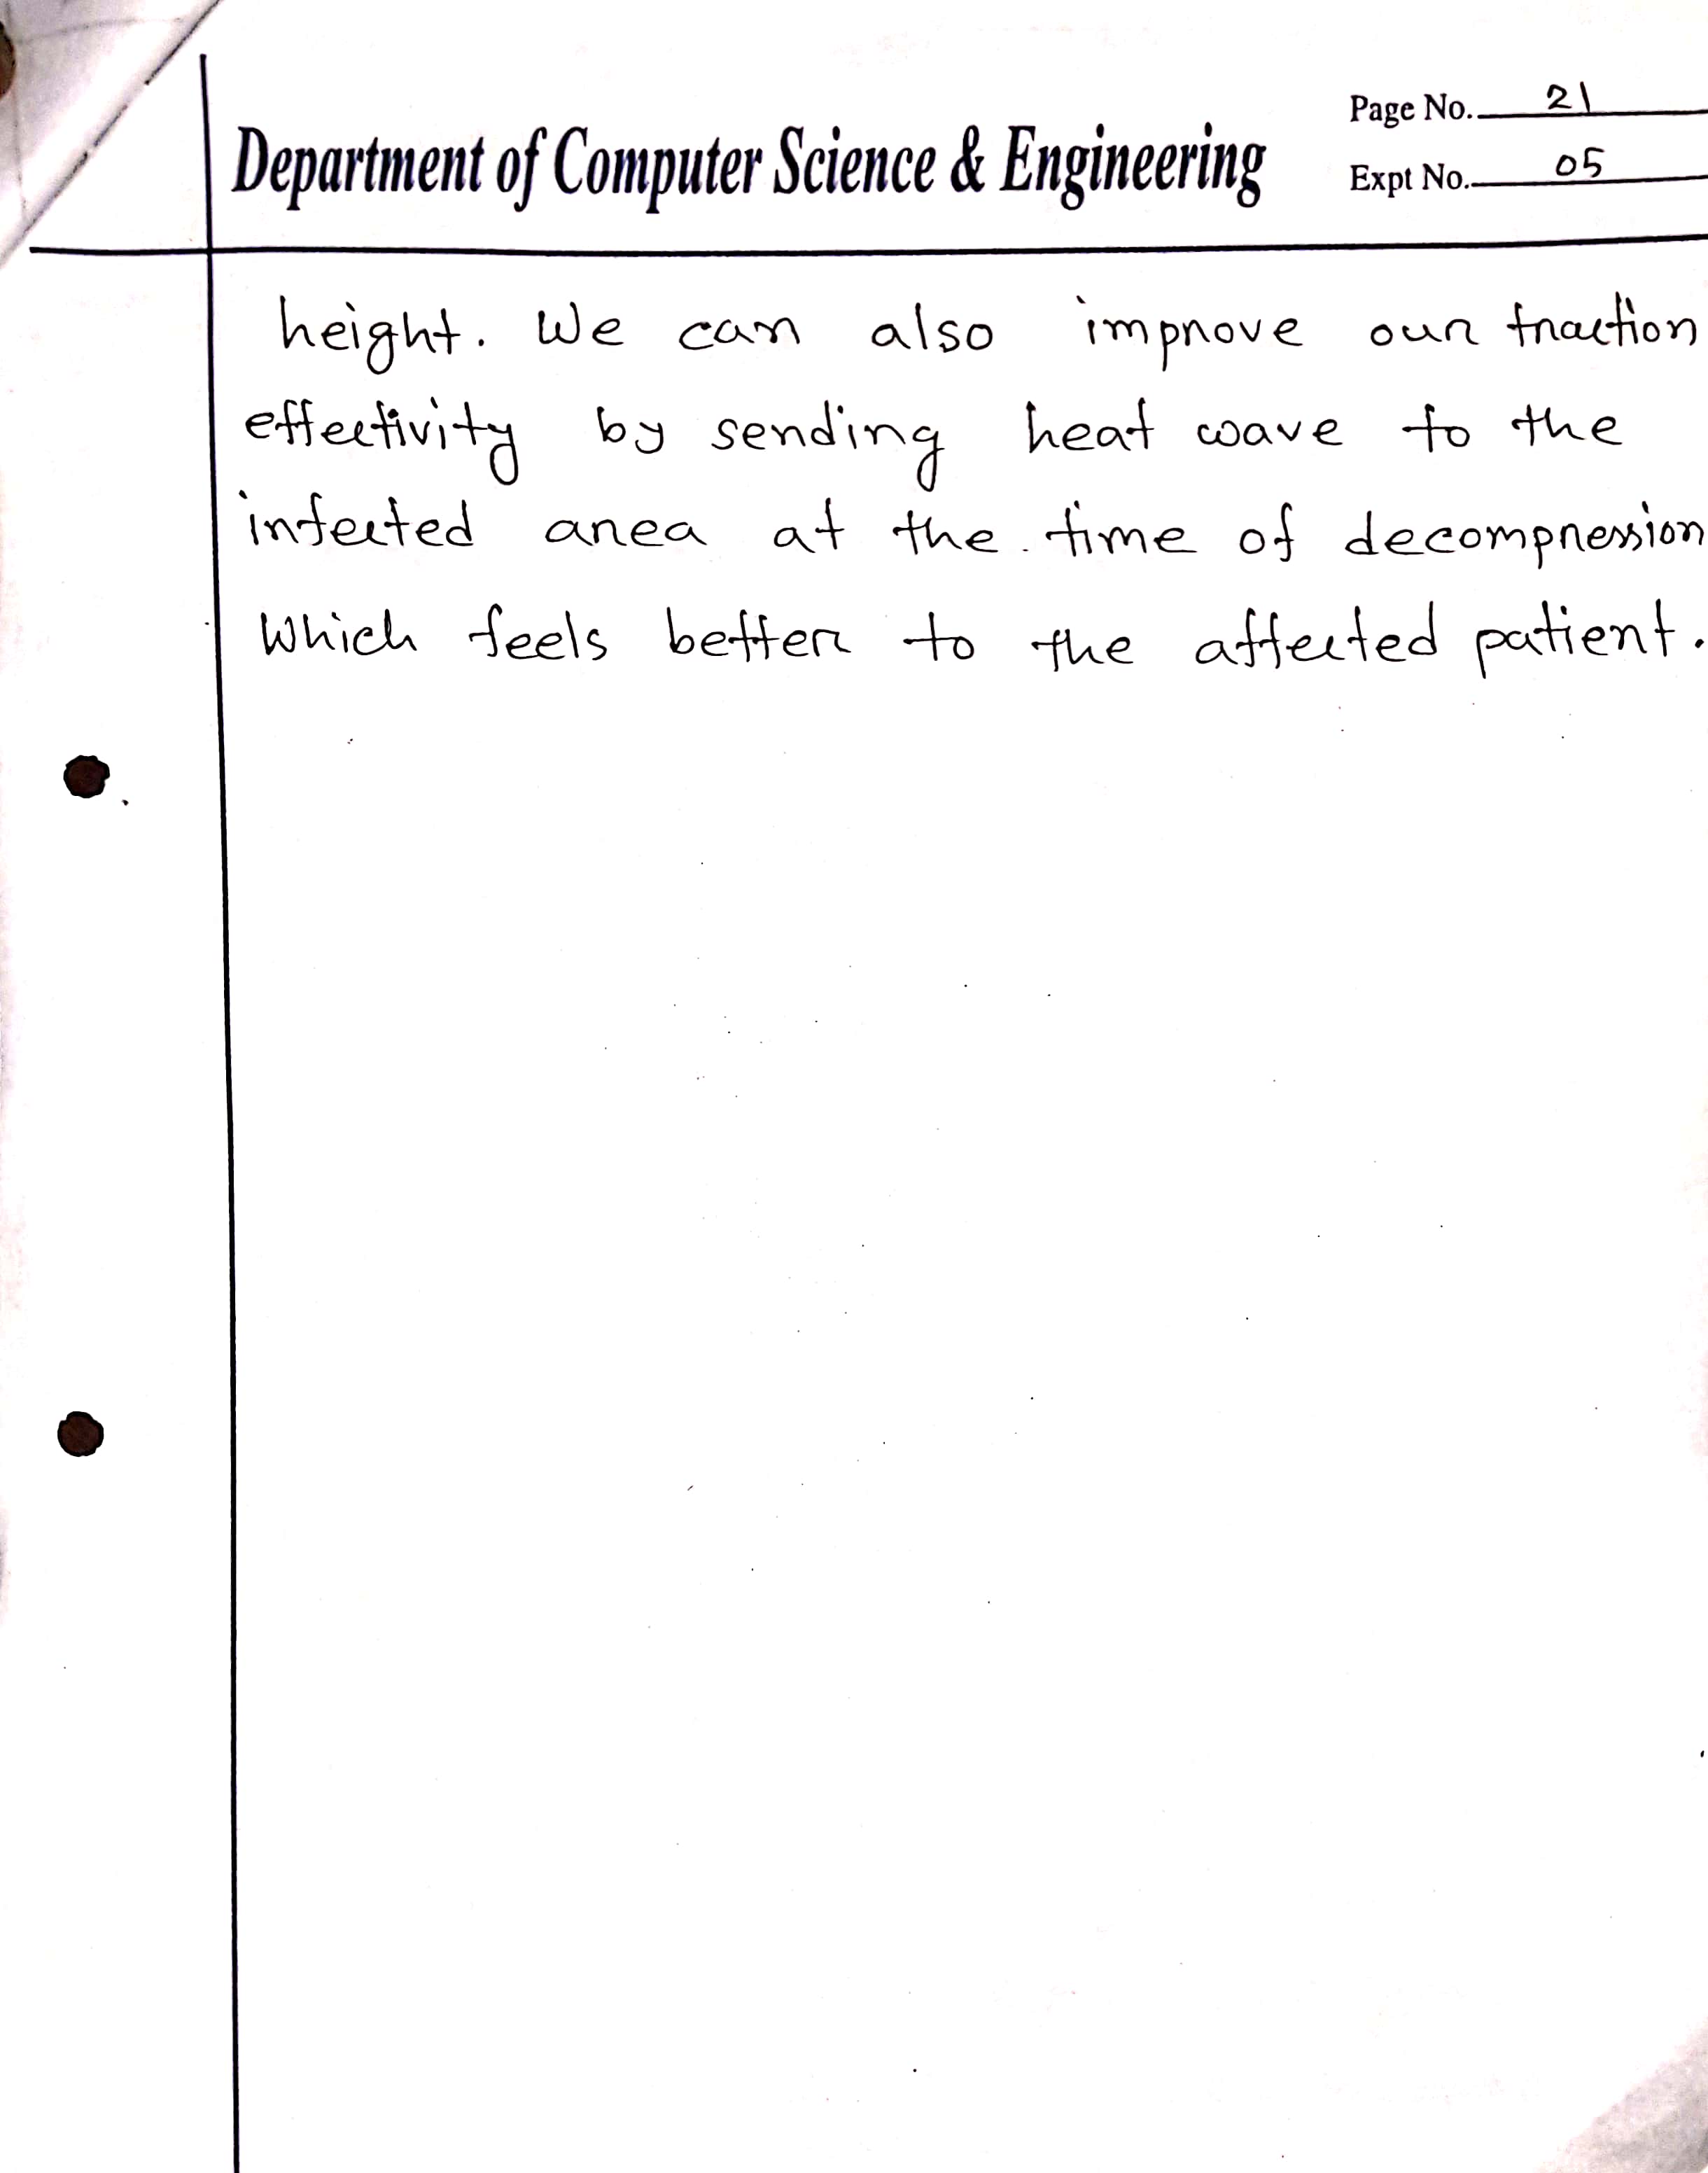 Department of Computer Science & Engineering
Page No. 21
Expt No. 05
height. We can also improve our traction
effectivity by sending heat wave to the
infected area at the time of decompression
which feels better to the affected patient.